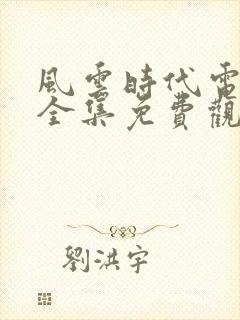 風雲時代電
全集免費觀
劉洪宇